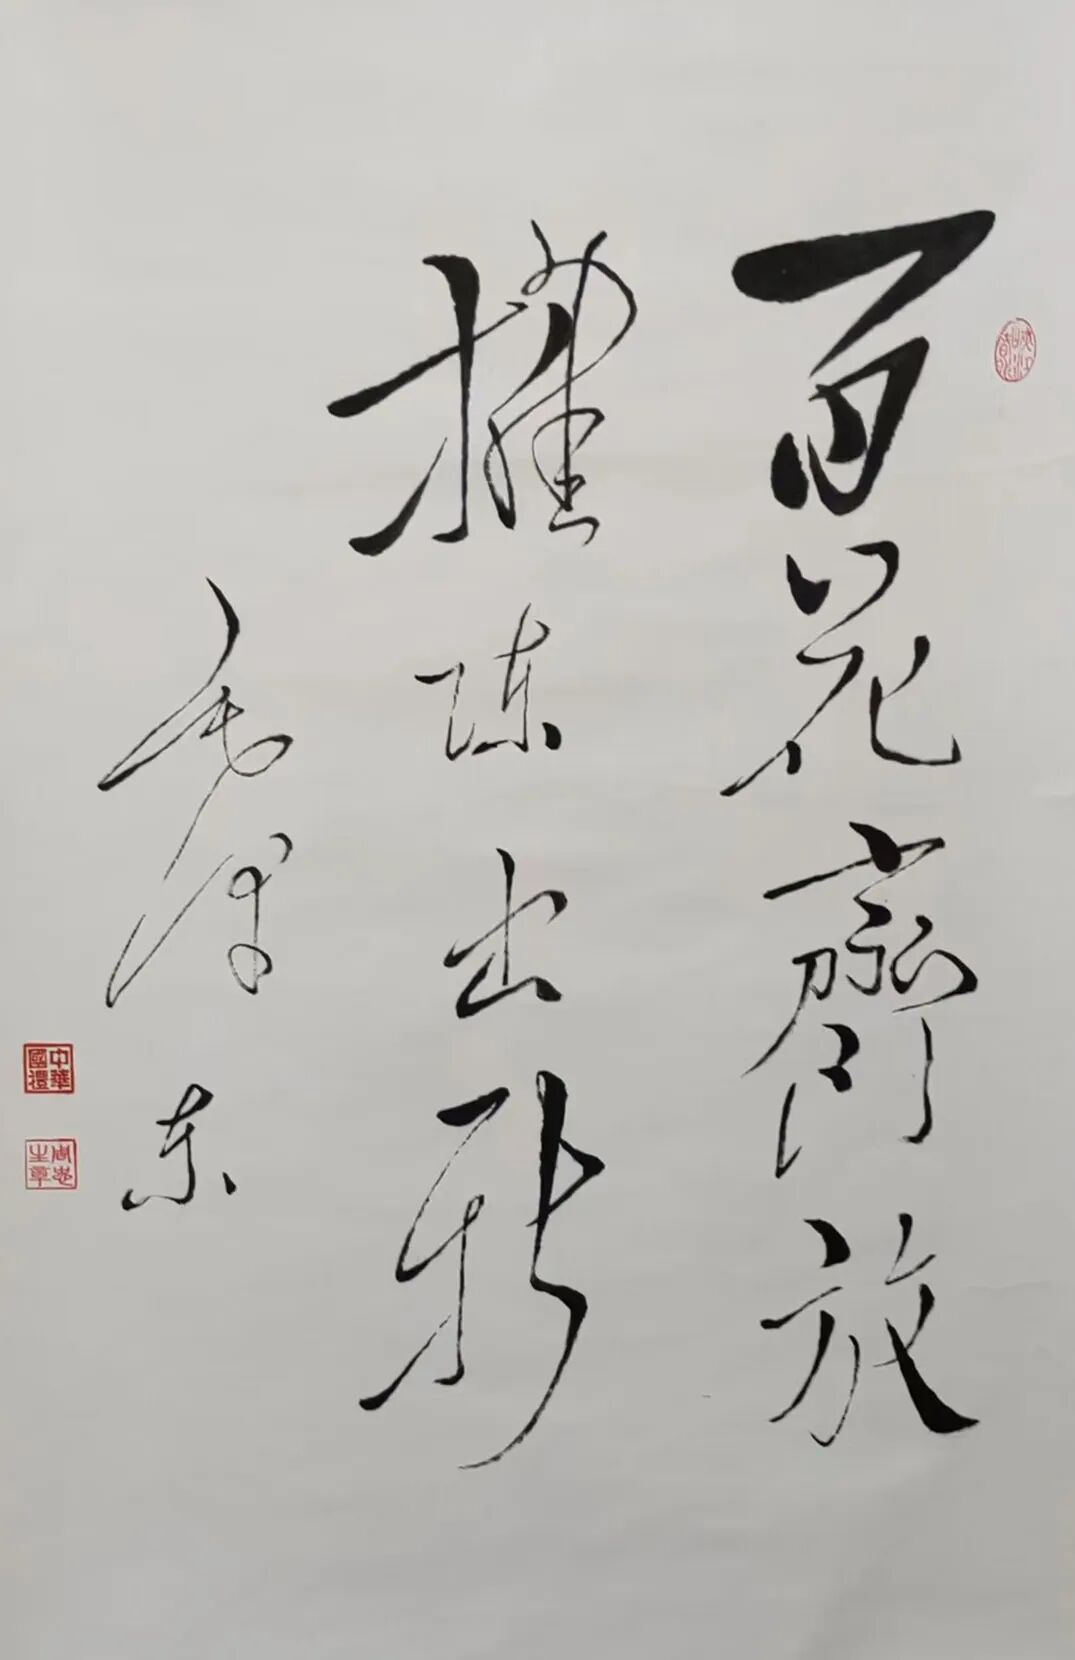 百花齊放
推陈出新
毛泽东
中華國禮